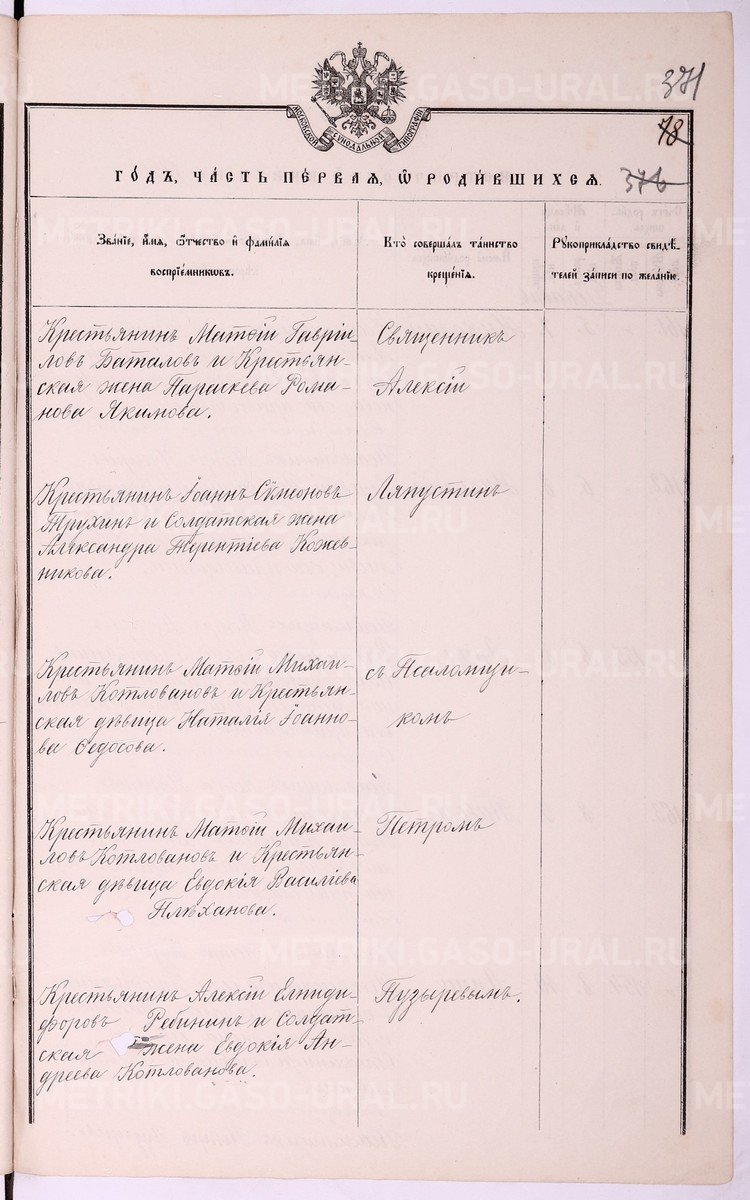 371
78
МОСКОВСКОЙ СѴНОДАЛЬНОЙ ТИПОГРАФІИ
ГО́ДЪ, ЧА́СТЬ ПЕ́РВАЯ, Ѡ҆ РОДИ́ВШИХСЯ. 376
Зва́нїе, и҆́мя, ѻ҆́тчество и҆ фами́лїя
воспрїе́мникѡвъ.
Кто̀ соверша́лъ та́инство
креще́нїя.
Рꙋкоприкла́дство свидѣ́-
телей за́писи по жела́нїю.
Крестьянинъ Матѳій Гавріи-
ловъ Баталовъ и Крестьян-
ская жена Параскева Рома-
нова Якимова.
Священникъ
Алексій
Крестьянинъ Іоаннъ Сѵмеоновъ
Трухинъ и Солдатская жена
Александра Терентіева Кожев-
никова.
Ляпустинъ
Крестьянинъ Матѳій Михаи-
ловъ Котловановъ и Крестьян-
ская дѣвица Наталія Іоанно-
ва Ѳедосова.
съ Псаломщи-
комъ
Крестьянинъ Матѳій Михаи-
ловъ Котловановъ и Крестьян-
ская дѣвица Евдокія Василіева
Плѣханова.
Петромъ
Крестьянинъ Алексій Елпиди-
форовъ Ребининъ и Солдат-
ская жена Евдокія Ан-
дреева Котлованова.
Пузыревымъ.
METRIKI.GASO-URAL.RU